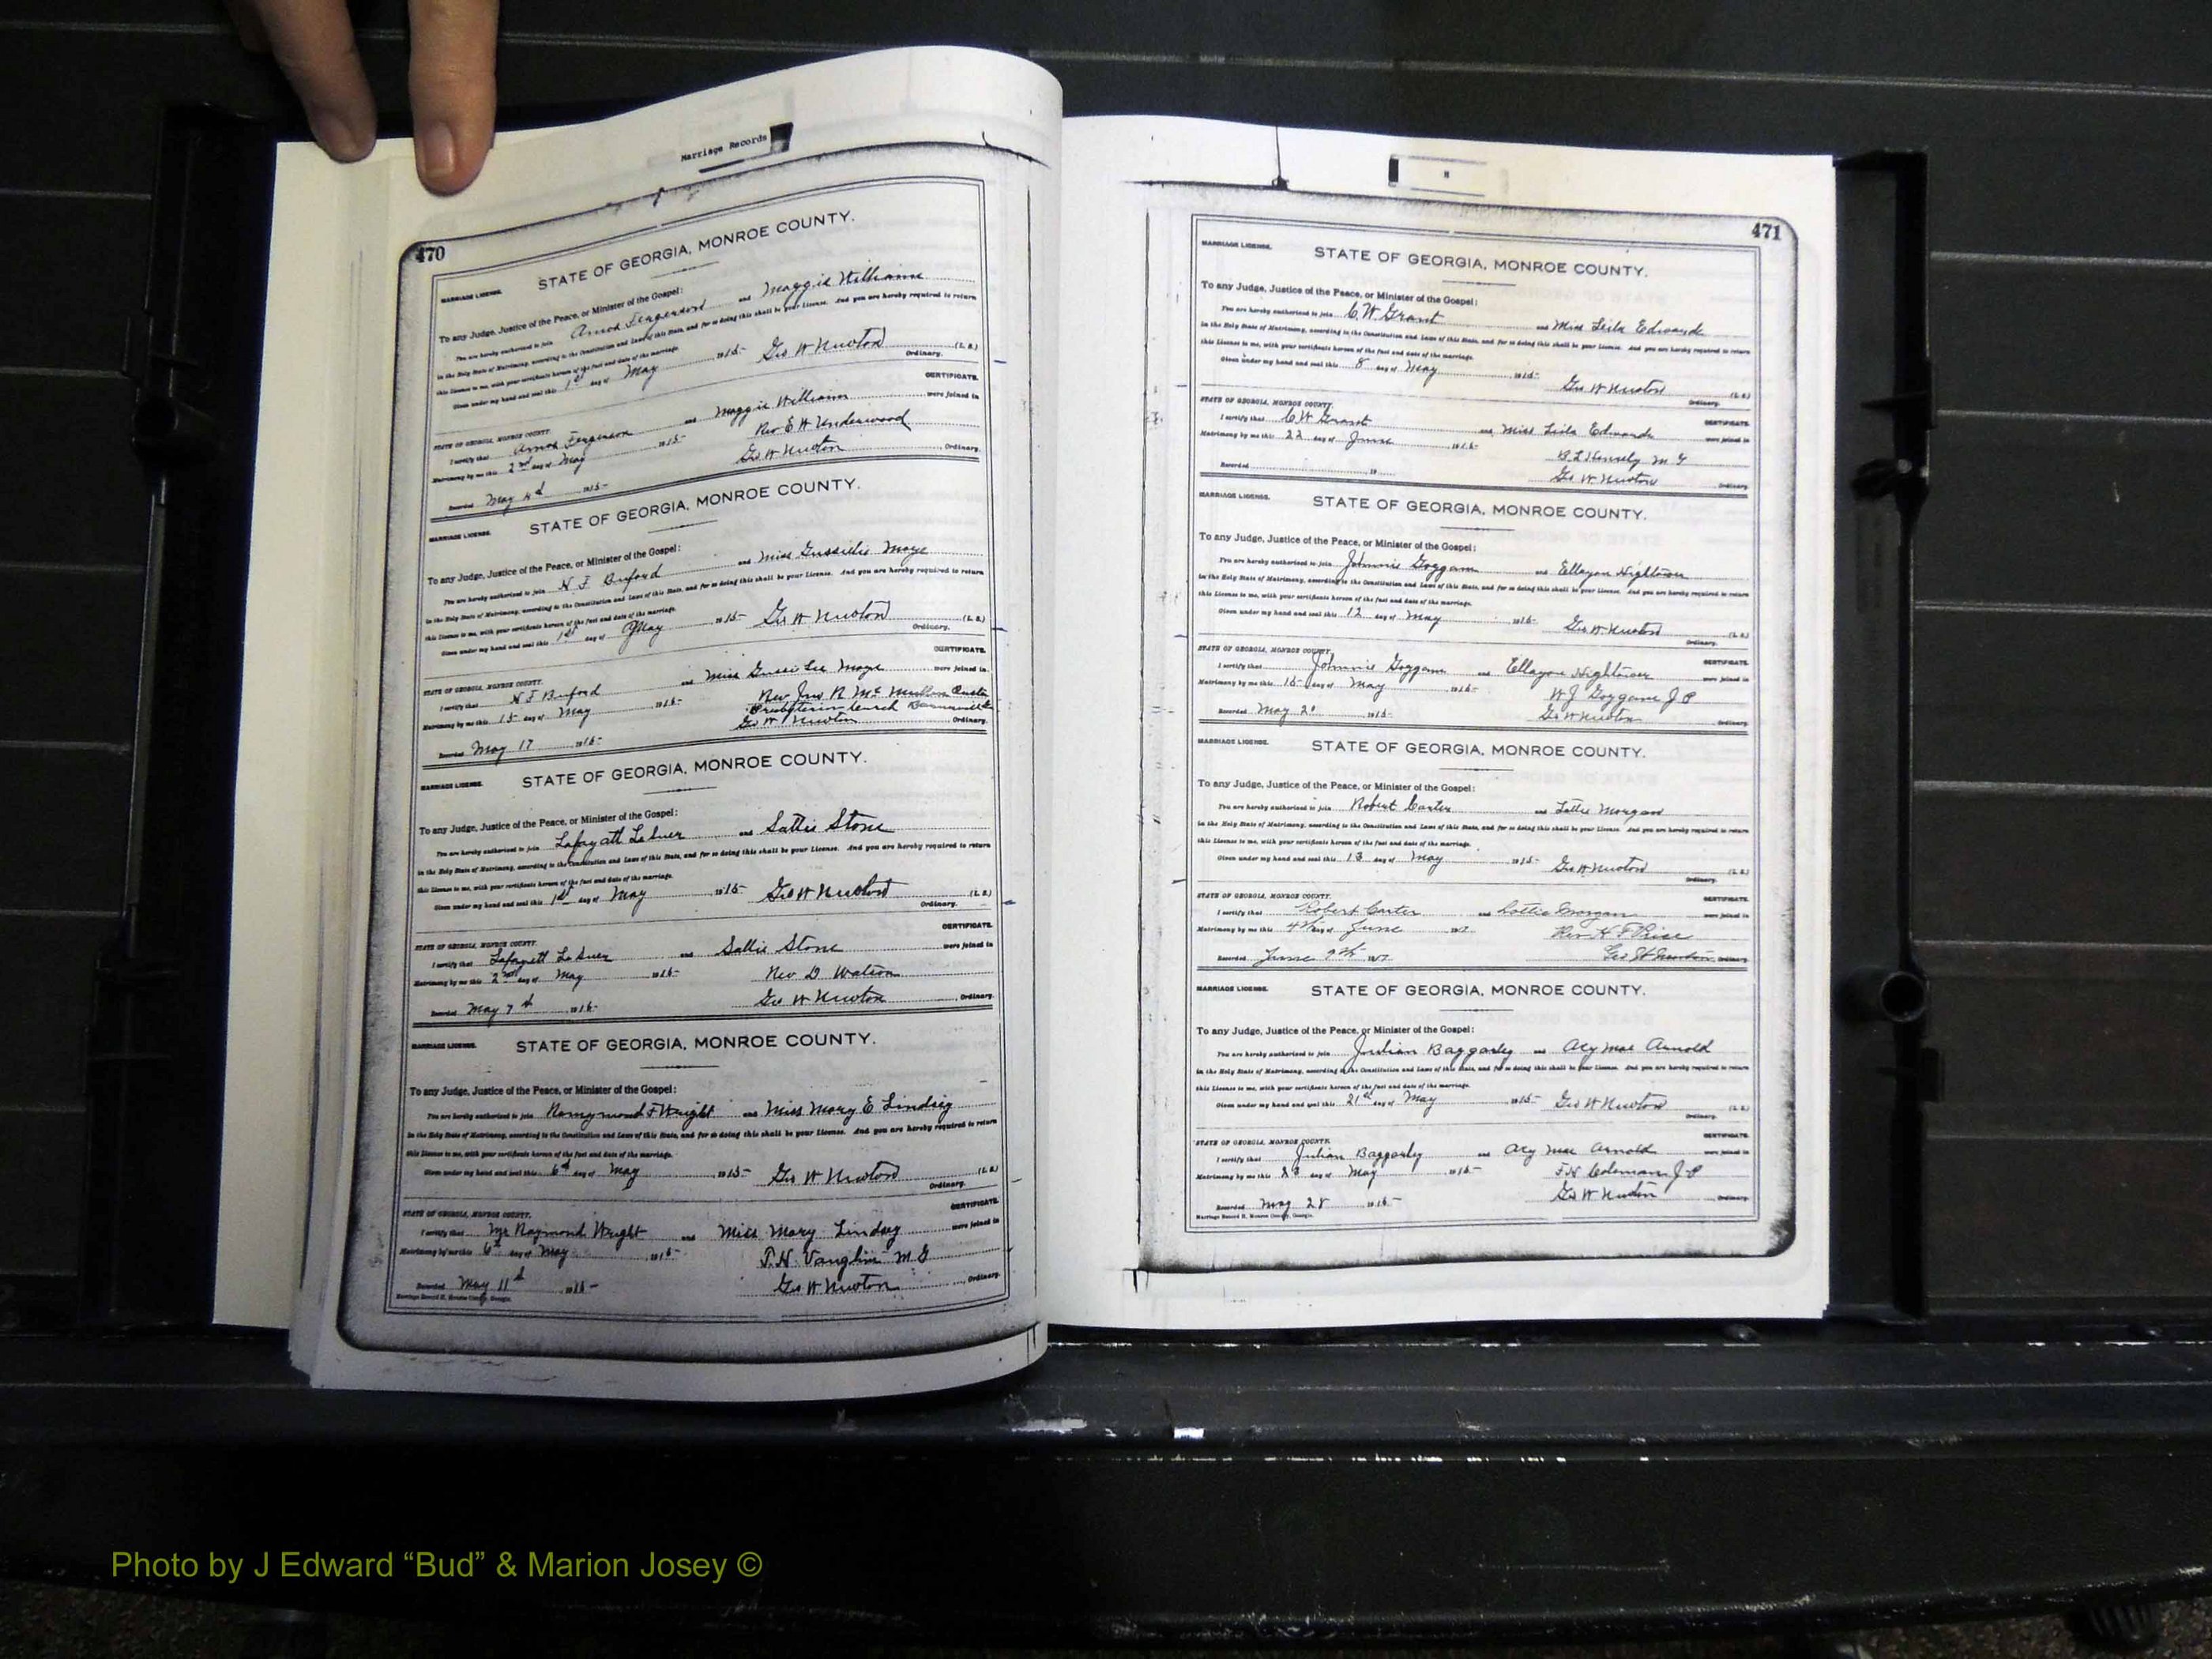 Marriage Records
470
MARRIAGE LICENSE. STATE OF GEORGIA, MONROE COUNTY.
To any Judge, Justice of the Peace, or Minister of the Gospel:
You are hereby authorized to join Amos Fergerson and Maggie Williams
in the Holy State of Matrimony, according to the Constitution and Laws of this State, and for so doing this shall be your License. And you are hereby required to return
this License to me, with your certificate hereon of the fact and date of the marriage.
Given under my hand and seal this 1st day of May 1915- Geo W Newton (L. S.)
Ordinary.
CERTIFICATE.
STATE OF GEORGIA, MONROE COUNTY.
I certify that Amos Fergerson and Maggie Williams were joined in
Matrimony by me this 2nd day of May 1915- Rev E W Underwood
Recorded May 4th 1915- Geo W Newton Ordinary.
MARRIAGE LICENSE. STATE OF GEORGIA, MONROE COUNTY.
To any Judge, Justice of the Peace, or Minister of the Gospel:
You are hereby authorized to join N F Buford and Miss Mays
in the Holy State of Matrimony, according to the Constitution and Laws of this State, and for so doing this shall be your License. And you are hereby required to return
this License to me, with your certificate hereon of the fact and date of the marriage.
Given under my hand and seal this 1st day of May 1915- Geo W Newton (L. S.)
Ordinary.
CERTIFICATE.
STATE OF GEORGIA, MONROE COUNTY.
I certify that N F Buford and Miss Lee Mays were joined in
Matrimony by me this 15- day of May 1915- Rev Jno R
Presbyterian Church
Recorded May 17 1915- Geo W Newton Ordinary.
MARRIAGE LICENSE. STATE OF GEORGIA, MONROE COUNTY.
To any Judge, Justice of the Peace, or Minister of the Gospel:
You are hereby authorized to join Lafayatt LeSuer and Sallie Stone
in the Holy State of Matrimony, according to the Constitution and Laws of this State, and for so doing this shall be your License. And you are hereby required to return
this License to me, with your certificate hereon of the fact and date of the marriage.
Given under my hand and seal this 1st day of May 1915- Geo W Newton (L. S.)
Ordinary.
CERTIFICATE.
STATE OF GEORGIA, MONROE COUNTY.
I certify that Lafayett LeSuer and Sallie Stone were joined in
Matrimony by me this 2nd day of May 1915- Rev D Watson
Recorded May 7th 1915- Geo W Newton Ordinary.
MARRIAGE LICENSE. STATE OF GEORGIA, MONROE COUNTY.
To any Judge, Justice of the Peace, or Minister of the Gospel:
You are hereby authorized to join F Wright and Miss Mary E Lindsey
in the Holy State of Matrimony, according to the Constitution and Laws of this State, and for so doing this shall be your License. And you are hereby required to return
this License to me, with your certificate hereon of the fact and date of the marriage.
Given under my hand and seal this 6th day of May 1915- Geo W Newton (L. S.)
Ordinary.
CERTIFICATE.
STATE OF GEORGIA, MONROE COUNTY.
I certify that Mr Raymond Wright and Miss Mary Lindsey were joined in
Matrimony by me this 6th day of May 1915- T. H. Vaughn M. G
Recorded May 11th 1915- Geo W Newton Ordinary.
Marriage Record H, Monroe County, Georgia.
H
471
MARRIAGE LICENSE. STATE OF GEORGIA, MONROE COUNTY.
To any Judge, Justice of the Peace, or Minister of the Gospel:
You are hereby authorized to join C. W. Grant and Miss Leila Edwards
in the Holy State of Matrimony, according to the Constitution and Laws of this State, and for so doing this shall be your License. And you are hereby required to return
this License to me, with your certificate hereon of the fact and date of the marriage.
Given under my hand and seal this 8 day of May 1915- Geo W Newton (L. S.)
Ordinary.
STATE OF GEORGIA, MONROE COUNTY. CERTIFICATE.
I certify that C W Grant and Miss Leila Edwards were joined in
Matrimony by me this 22 day of June 1915- B L Hensely M G
Recorded 19 Geo W Newton Ordinary.
MARRIAGE LICENSE. STATE OF GEORGIA, MONROE COUNTY.
To any Judge, Justice of the Peace, or Minister of the Gospel:
You are hereby authorized to join Johnnie Goggans and Ellayon Hightower
in the Holy State of Matrimony, according to the Constitution and Laws of this State, and for so doing this shall be your License. And you are hereby required to return
this License to me, with your certificate hereon of the fact and date of the marriage.
Given under my hand and seal this 12 day of May 1915- Geo W Newton (L. S.)
Ordinary.
STATE OF GEORGIA, MONROE COUNTY. CERTIFICATE.
I certify that Johnnie Goggans and Ellayon Hightower were joined in
Matrimony by me this 15- day of May 1915- W J Goggans J P
Recorded May 1915- Geo W Newton Ordinary.
MARRIAGE LICENSE. STATE OF GEORGIA, MONROE COUNTY.
To any Judge, Justice of the Peace, or Minister of the Gospel:
You are hereby authorized to join Robert Carter and Lottie Morgan
in the Holy State of Matrimony, according to the Constitution and Laws of this State, and for so doing this shall be your License. And you are hereby required to return
this License to me, with your certificate hereon of the fact and date of the marriage.
Given under my hand and seal this 13 day of May 1915- Geo W Newton (L. S.)
Ordinary.
STATE OF GEORGIA, MONROE COUNTY. CERTIFICATE.
I certify that Robert Carter and Lottie Morgan were joined in
Matrimony by me this 4th day of June Rev H F Rice
Recorded June 9th Geo W Newton Ordinary.
MARRIAGE LICENSE. STATE OF GEORGIA, MONROE COUNTY.
To any Judge, Justice of the Peace, or Minister of the Gospel:
You are hereby authorized to join Julian Baggarly and Acy Mae Arnold
in the Holy State of Matrimony, according to the Constitution and Laws of this State, and for so doing this shall be your License. And you are hereby required to return
this License to me, with your certificate hereon of the fact and date of the marriage.
Given under my hand and seal this 21st day of May 1915- Geo W Newton (L. S.)
Ordinary.
STATE OF GEORGIA, MONROE COUNTY. CERTIFICATE.
I certify that Julian Baggarly and Acy Mae Arnold were joined in
Matrimony by me this 23 day of May 1915- Coleman J P
Recorded May 28 1915- Geo W Newton Ordinary.
Marriage Record H, Monroe County, Georgia.
Photo by J Edward “Bud” & Marion Josey ©